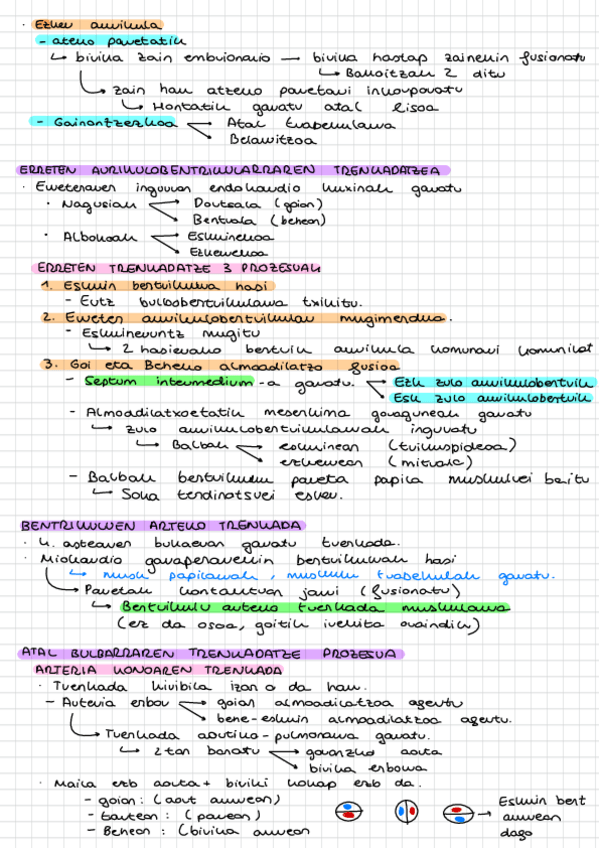 · Ezker aurikula
- atzeko paretatik
↳ birika zain embrionario — birika hastap zainekin fusionatu
↳ Bakoitzak 2 ditu
↳ zain hau atzeko paretari inkorporatu
↳ Hortatik garatu atal lisoa
- Gainontzerkoa → Atal trabekulama
→ Belarritzoa
ERRETEN AURIKULOBENTRIKULARRAREN TRENKADATZEA
· Eweteraren inguruan endokardio kuxinak garatu
· Nagusiak → Dortsala (goian)
→ Bentrala (behean)
· Albokoak → Eskuinekoa
→ Ezkerrekoa
ERRETEN TRENKADATZE 3 PROZESUAK
1. Eskuin bentrikulua hasi
- Eutz bulbobentrikulama txikitu.
2. Erreten aurikulobentrikular mugimendua.
- Eskuineruntz mugitu
↳ 2 hasierako bentrik aurikula komunari komunikat
3. Goi eta Beheko almoadilatzo fusioa
- Septum intermedium-a garatu. → Ezk zulo aurikulobentrik
→ Esk zulo aurikulobentrik
- Almoadilatxoetatik mesenkima goragunean garatu
↳ zulo aurikulobentrikularrak inguratu
↳ Balbak → eskuinean (trikuspideoa)
→ ezkerrean (mitrala)
- Balbak bentrikulu pareta papila muskuluei beitu
↳ Soka tendinotsuei esker.
BENTRIKULUEN ARTEKO TRENKADA
· 4. astearen bukaeran garatu trenkada.
· Miokardio garaperarekin bentrikuluak hasi
↳ musk papilarrak, muskulu trabekulak garatu.
↳ Paretak kontaktuan jarri (fusionatu)
↳ Bentrikulu arteko trenkada muskularra
(ez da osoa, goitik irekita oraindik)
ATAL BULBARRAREN TRENKADATZE PROZESUA
ARTERIA KONOAREN TRENKADA
· Trenkada kiribila izango da hau.
- Arteria erbor → goian almoadilatzoa agertu
→ bene-eskuin almoadilatzoa agertu.
↳ Trenkada aortiko-pulmonarra garatu.
↳ 2tan banatu → goranzko aorta
→ birika erborra
· Maila ezb aorta + biriki kokap ezb da.
- goian: (aort aurrean)
- tartean: (parean)
- Behean: (birika aurrean
→ Eskuin bent
aurrean
dago